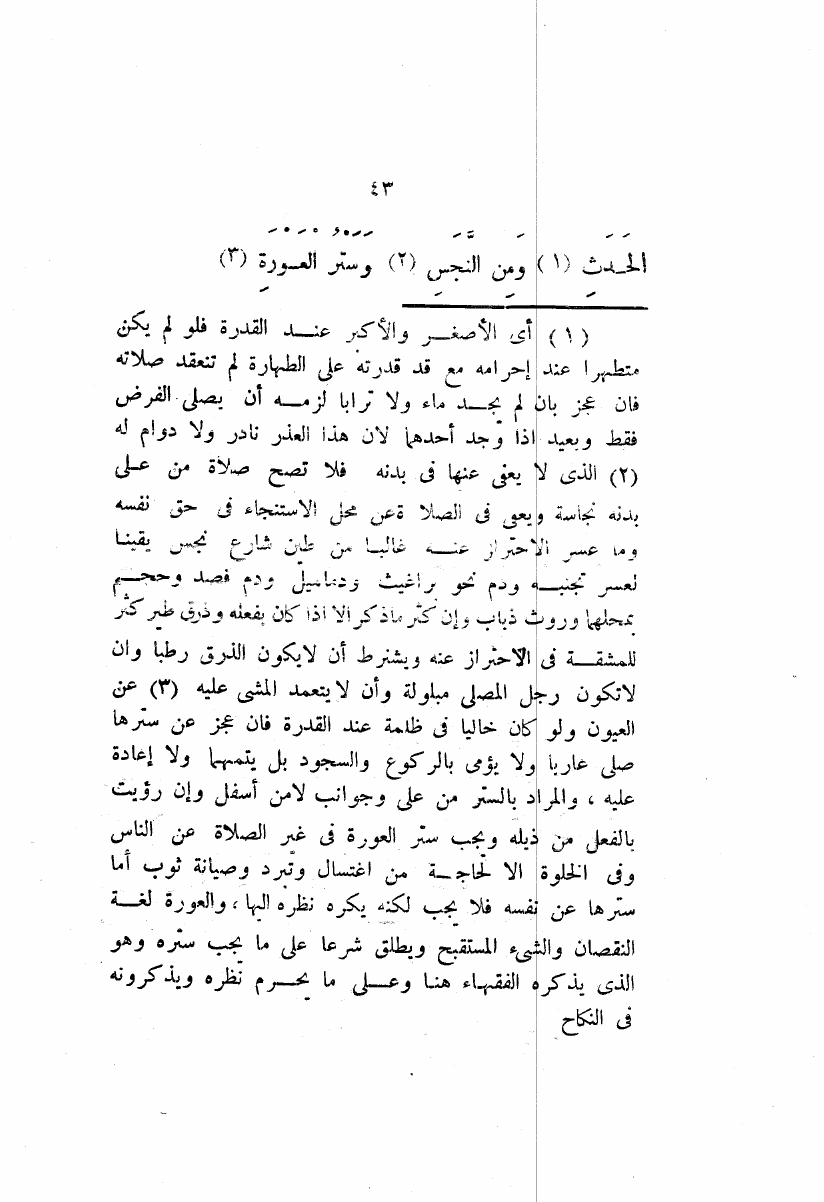 ٤٣
الحَدَثِ (١) ومِنَ النَّجَسِ (٢) وسَتْرِ العَوْرَةِ (٣)
(١) أى الأصغر والأكبر عند القدرة فلو لم يكن
متطهرا عند إحرامه مع قد قدرته على الطهارة لم تنعقد صلاته
فان عجز بان لم يجد ماء ولا ترابا لزمه أن يصلى الفرض
فقط ويعيد اذا وجد أحدهما لان هذا العذر نادر ولا دوام له
(٢) الذى لا يعفى عنها فى بدنه فلا تصح صلاة من على
بدنه نجاسة ويعفى فى الصلا ةعن محل الاستنجاء فى حق نفسه
وما عسر الاحتراز عنه غالبا من طين شارع نجس يقينا
لعسر تجنبه ودم نحو براغيث ودماميل ودم فصد وحجم
بمحلهما وروث ذباب وإن كثر ماذكر الا اذا كان بفعله وذرق طير كثر
للمشقة فى الاحتراز عنه ويشترط أن لايكون الذرق رطبا وان
لاتكون رجل المصلى مبلولة وأن لايتعمد المشى عليه (٣) عن
العيون ولو كان خاليا فى ظلمة عند القدرة فان عجز عن سترها
صلى عاريا ولا يؤمى بالركوع والسجود بل يتمهما ولا إعادة
عليه ، والمراد بالستر من على وجوانب لامن أسفل وإن رؤيت
بالفعل من ذيله ويجب ستر العورة فى غير الصلاة عن الناس
وفى الخلوة الا لحاجة من اغتسال وتبرد وصيانة ثوب أما
سترها عن نفسه فلا يجب لكنه يكره نظره اليها ، والعورة لغة
النقصان والشىء المستقبح ويطلق شرعا على ما يجب ستره وهو
الذى يذكره الفقهاء هنا وعلى ما يحرم نظره ويذكرونه
فى النكاح